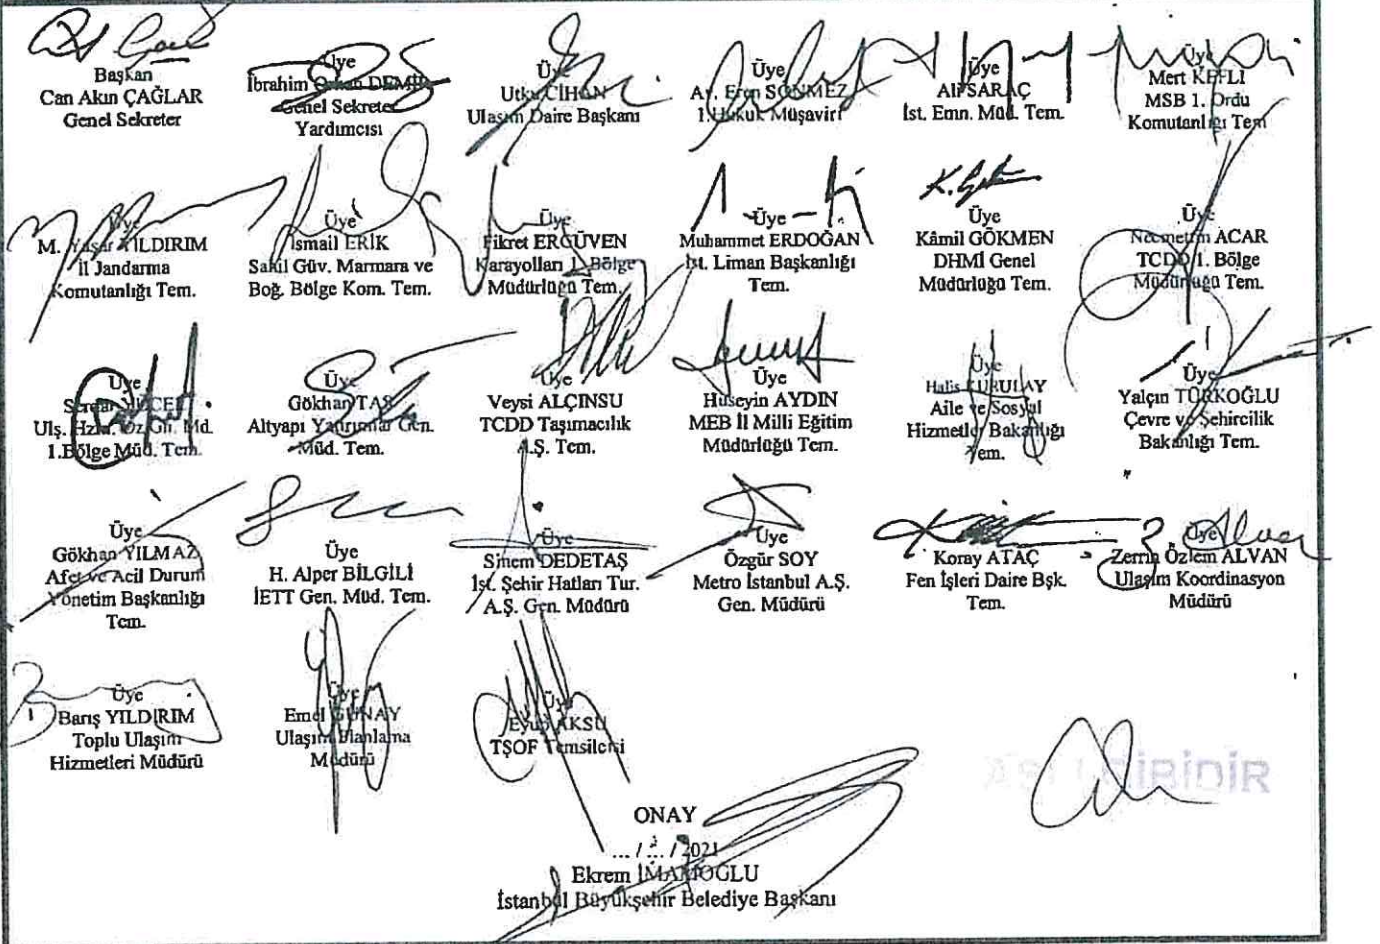 Başkan
Can Akın ÇAĞLAR
Genel Sekreter
Üye
İbrahim Orhan DEMİR
Genel Sekreter
Yardımcısı
Üye
Utku CİHAN
Ulaşım Daire Başkanı
Üye
Av. Eren SÖNMEZ
1.Hukuk Müşaviri
Üye
Ali SARAÇ
İst. Emn. Müd. Tem.
Üye
Mert KEFLİ
MSB 1. Ordu
Komutanlığı Tem
Üye
M. Yaşar YILDIRIM
İl Jandarma
Komutanlığı Tem.
Üye
İsmail ERİK
Sahil Güv. Marmara ve
Boğ. Bölge Kom. Tem.
Üye
Fikret ERGÜVEN
Karayolları 1. Bölge
Müdürlüğü Tem.
Üye
Muhammet ERDOĞAN
İst. Liman Başkanlığı
Tem.
K.
Üye
Kâmil GÖKMEN
DHMİ Genel
Müdürlüğü Tem.
Üye
Necmettin ACAR
TCDD 1. Bölge
Müdürlüğü Tem.
Üye
Serdar YÜCEL
Ulş. Hzm. Md.
1.Bölge Müd. Tem.
Üye
Gökhan TAŞ
Altyapı Yatırımlar Gen.
Müd. Tem.
Üye
Veysi ALÇINSU
TCDD Taşımacılık
A.Ş. Tem.
Üye
Hüseyin AYDIN
MEB İl Milli Eğitim
Müdürlüğü Tem.
Üye
Halis
Aile ve Sosyal
Hizmetler Bakanlığı
Tem.
Üye
Yalçın TÜRKOĞLU
Çevre ve Şehircilik
Bakanlığı Tem.
Üye
Gökhan YILMAZ
Afet ve Acil Durum
Yönetim Başkanlığı
Tem.
Üye
H. Alper BİLGİLİ
İETT Gen. Müd. Tem.
Üye
Sinem DEDETAŞ
İst. Şehir Hatları Tur.
A.Ş. Gen. Müdürü
Üye
Özgür SOY
Metro İstanbul A.Ş.
Gen. Müdürü
Üye
Koray ATAÇ
Fen İşleri Daire Bşk.
Tem.
Üye
Zerrin Özlem ALVAN
Ulaşım Koordinasyon
Müdürü
Üye
Barış YILDIRIM
Toplu Ulaşım
Hizmetleri Müdürü
Üye
Emel GÜNAY
Ulaşım Planlama
Müdürü
Üye
Eyüp AKSU
TŞOF Temsilcisi
ASLI GİBİDİR
ONAY
... / ... / 2021
Ekrem İMAMOĞLU
İstanbul Büyükşehir Belediye Başkanı